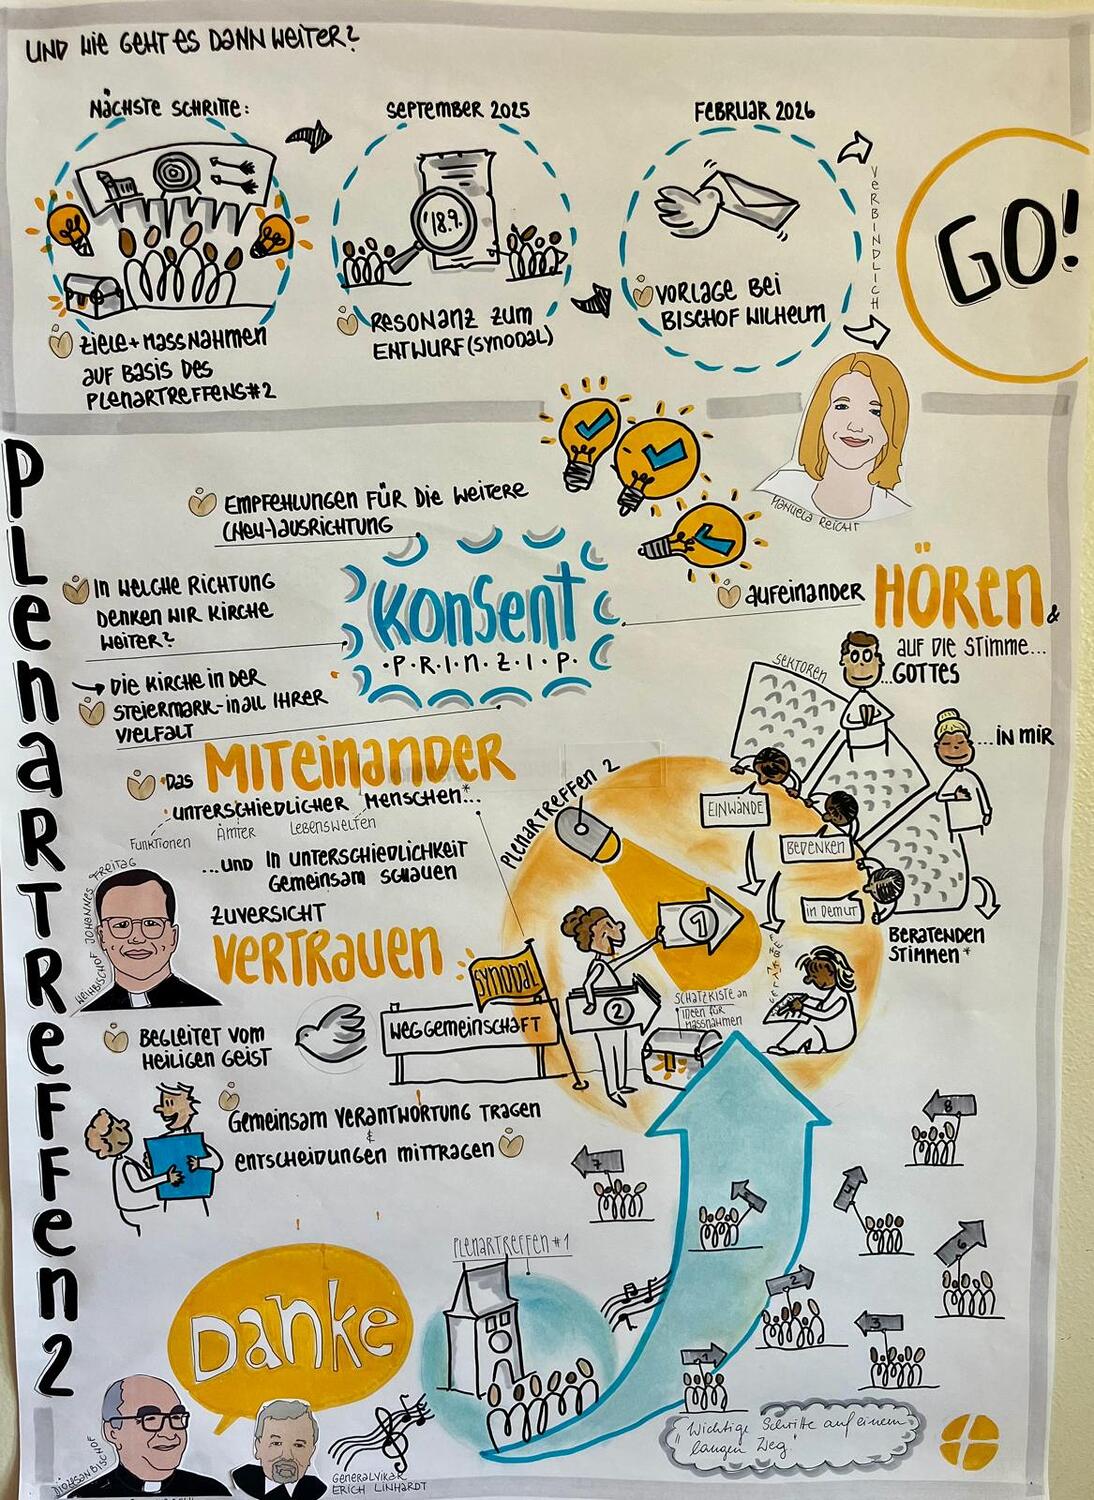 UND WIE GEHT ES DANN WEITER?
NÄCHSTE SCHRITTE:
ZIELE + MASSNAHMEN
AUF BASIS DES
PLENARTREFFENS #2
SEPTEMBER 2025
18.9.
RESONANZ ZUM
ENTWURF (SYNODAL)
FEBRUAR 2026
VORLAGE BEI
BISCHOF WILHELM
VERBINDLICH
GO!
MANUELA REICHT
PLENARTREFFEN 2
EMPFEHLUNGEN FÜR DIE WEITERE
(NEU-)AUSRICHTUNG
IN WELCHE RICHTUNG
DENKEN WIR KIRCHE
WEITER?
DIE KIRCHE IN DER
STEIERMARK - IN ALL IHRER
VIELFALT
KONSENT
·P·R·I·N·Z·I·P·
AUFEINANDER HÖREN &
AUF DIE STIMME...
...GOTTES
...IN MIR
SEKTOREN
EINWÄNDE
BEDENKEN
IN DEMUT
BERATENDEN
STIMMEN*
DAS MITEINANDER
UNTERSCHIEDLICHER MENSCHEN*...
FUNKTIONEN ÄMTER LEBENSWELTEN
...UND IN UNTERSCHIEDLICHKEIT
GEMEINSAM SCHAUEN
ZUVERSICHT
VERTRAUEN
WEIHBISCHOF JOHANNES FREITAG
PLENARTREFFEN 2
1
2
SCHATZKISTE AN
IDEEN FÜR
MASSNAHMEN
SYNODAL
WEGGEMEINSCHAFT
BEGLEITET VOM
HEILIGEN GEIST
GEMEINSAM VERANTWORTUNG TRAGEN
&
ENTSCHEIDUNGEN MITTRAGEN
8
7
4
6
2
3
1
PLENARTREFFEN #1
Danke
DIÖZESANBISCHOF
GENERALVIKAR
ERICH LINHARDT
"Wichtige Schritte auf einem
langen Weg"